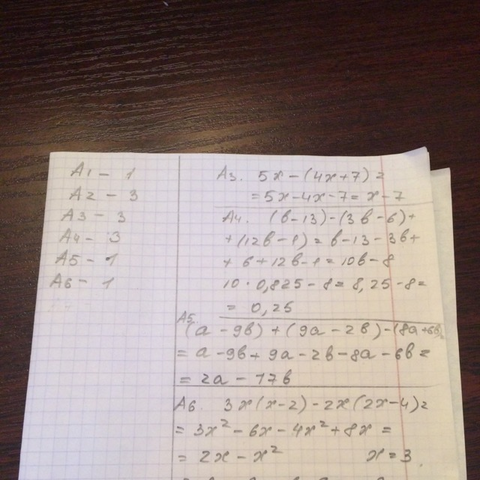 A1 - 1
A2 - 3
A3 - 3
A4 - 3
A5 - 1
A6 - 1
A3. 5x-(4x+7)=
=5x-4x-7=x-7
A4. (b-13)-(3b-6)+
+(12b-1)=b-13-3b+
+6+12b-1=10b-8
10·0,825-8=8,25-8=
= 0,25
A5
(a-9b)+(9a-2b)-(8a+6b)
=a-9b+9a-2b-8a-6b=
=2a-17b
A6. 3x(x-2)-2x(2x-4)=
=3x²-6x-4x²+8x=
=2x-x² x=3